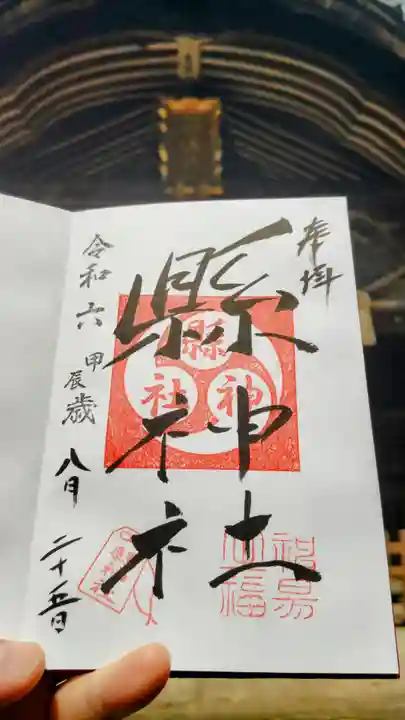 奉拝
縣神社
縣
神
社
令和六甲辰歳八月二十五日